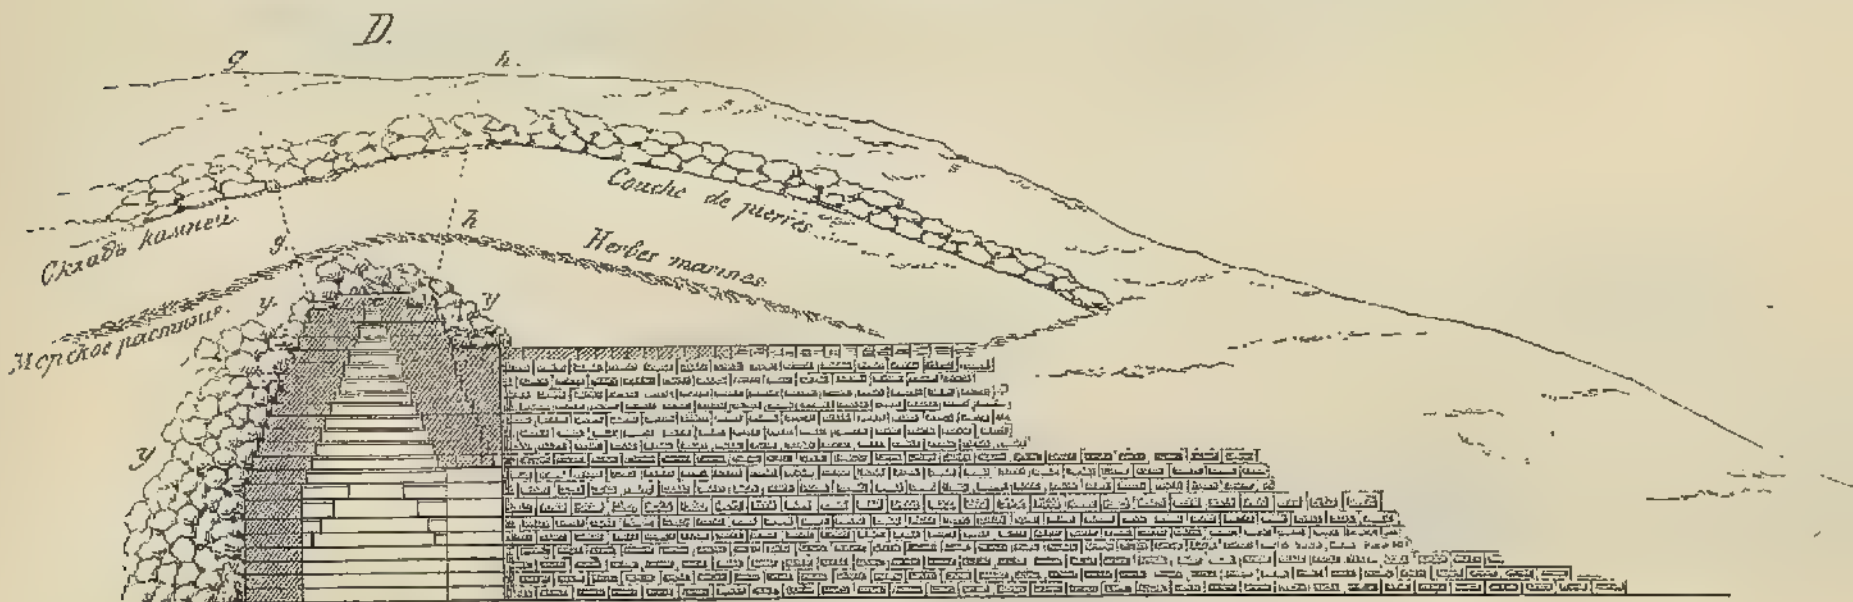 D.
g.
h.
Couche de pierres
Складъ камней
h
g.
Herbes marines
y.
y
Морское растение.
y